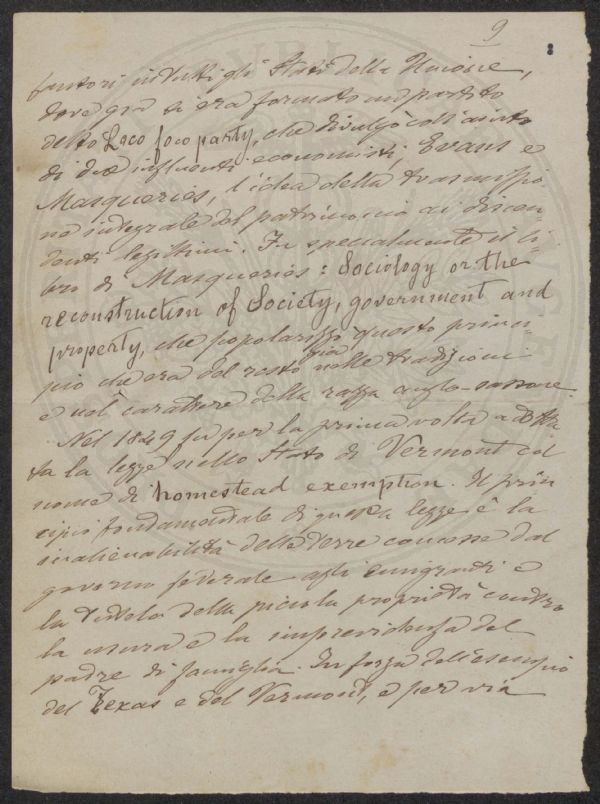 9
fautori in tutti gli Stati della Unione,
dove già si era formato un partito
detto Loco foco party, che divulgò coll'aiuto
di due influenti economisti, Evans e
Masqueries, l'idea della trasmissio-
ne integrale del patrimonio ai discen-
denti legittimi. Fu specialmente il li-
bro di Masqueries: Sociology or the
reconstruction of Society, government and
property, che popolarizzò questo princi-
pio che era del resto già nelle tradizioni
e nel carattere della razza anglo-sassone.
Nel 1849 fu per la prima volta adotta-
ta la legge nello Stato di Vermont col
nome di homestead exemption. Il prin
cipio fondamentale di questa legge è la
inalienabilità delle terre concesse dal
governo federale agli emigranti e
la tutela della piccola proprietà contro
la usura e la imprevidenza del
padre di famiglia. In forza dell'esempio
del Texas e del Vermont, e per via